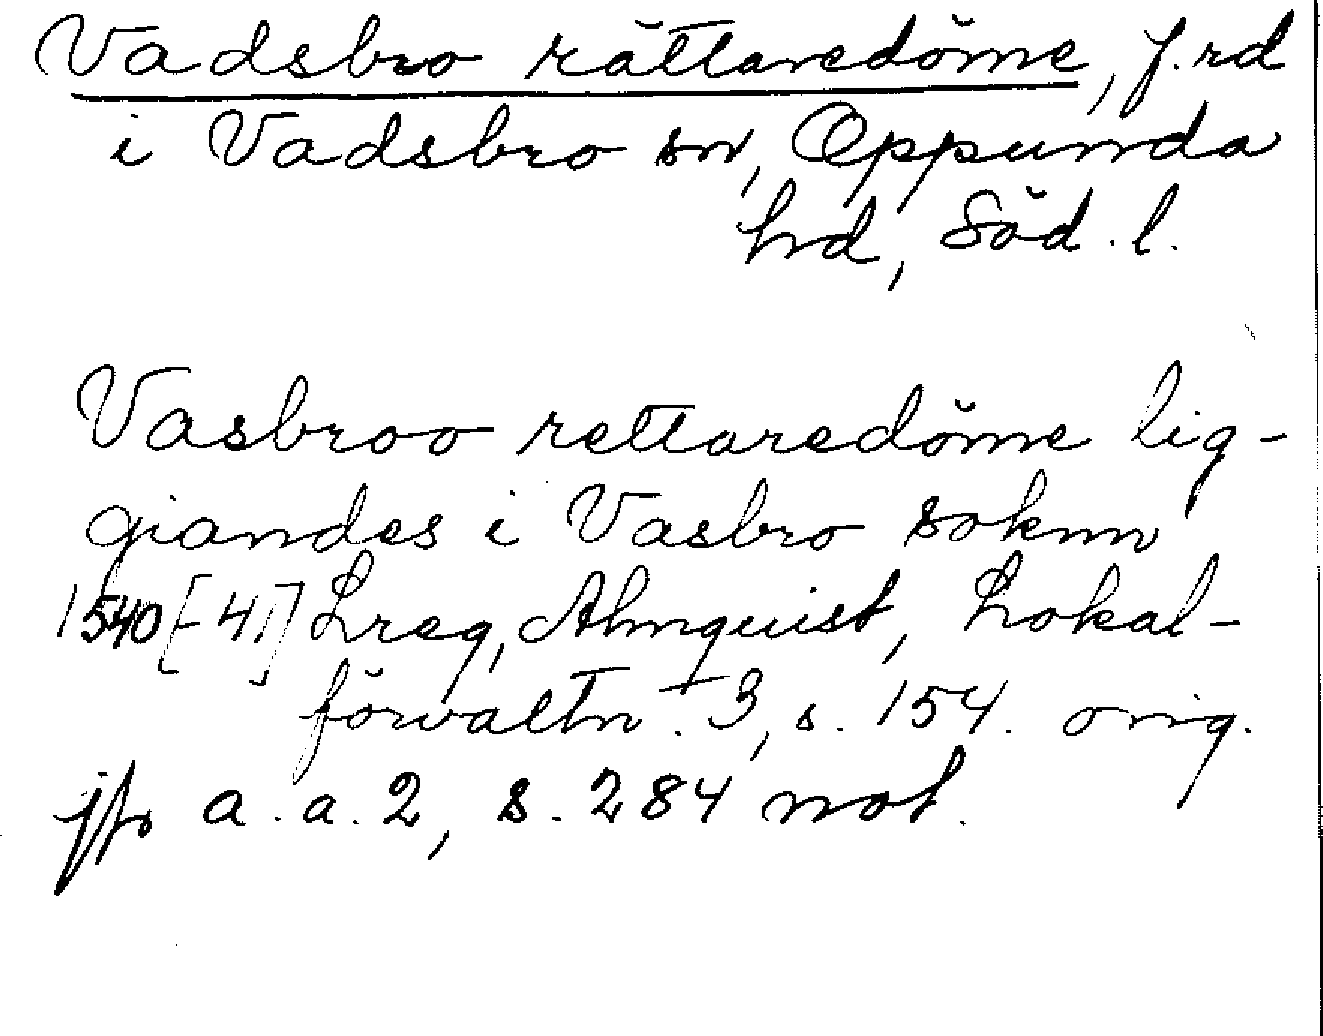 Vadsbro rättaredöme, f.rd
i Vadsbro sn, Oppunda
hd, Söd. l.
Vasbroo rettaredöme lig-
giandes i Vasbro soknn
1540[-41] Lreg, Almquist, Lokal-
förvaltn. 3, s. 154. orig.
jfr a. a. 2, s. 284 not.